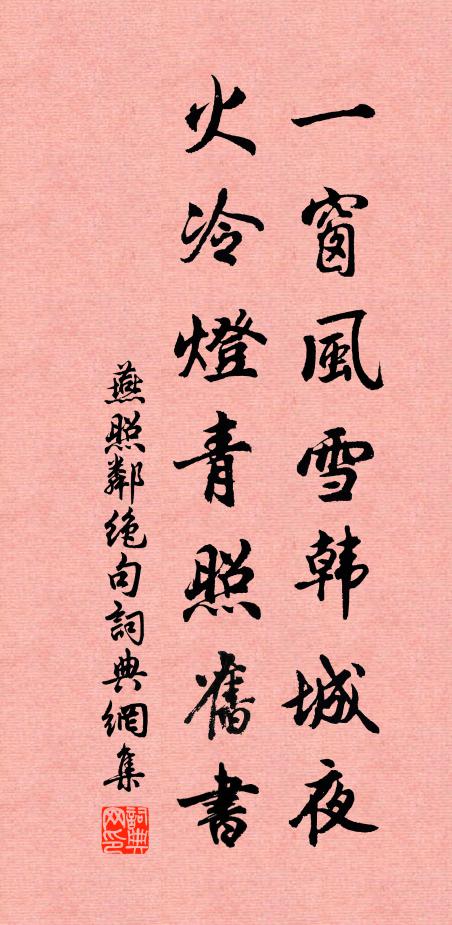 一窗風雪韩城夜
火冷燈青照舊書
燕照鄰绝句詞典網集
詞典网印